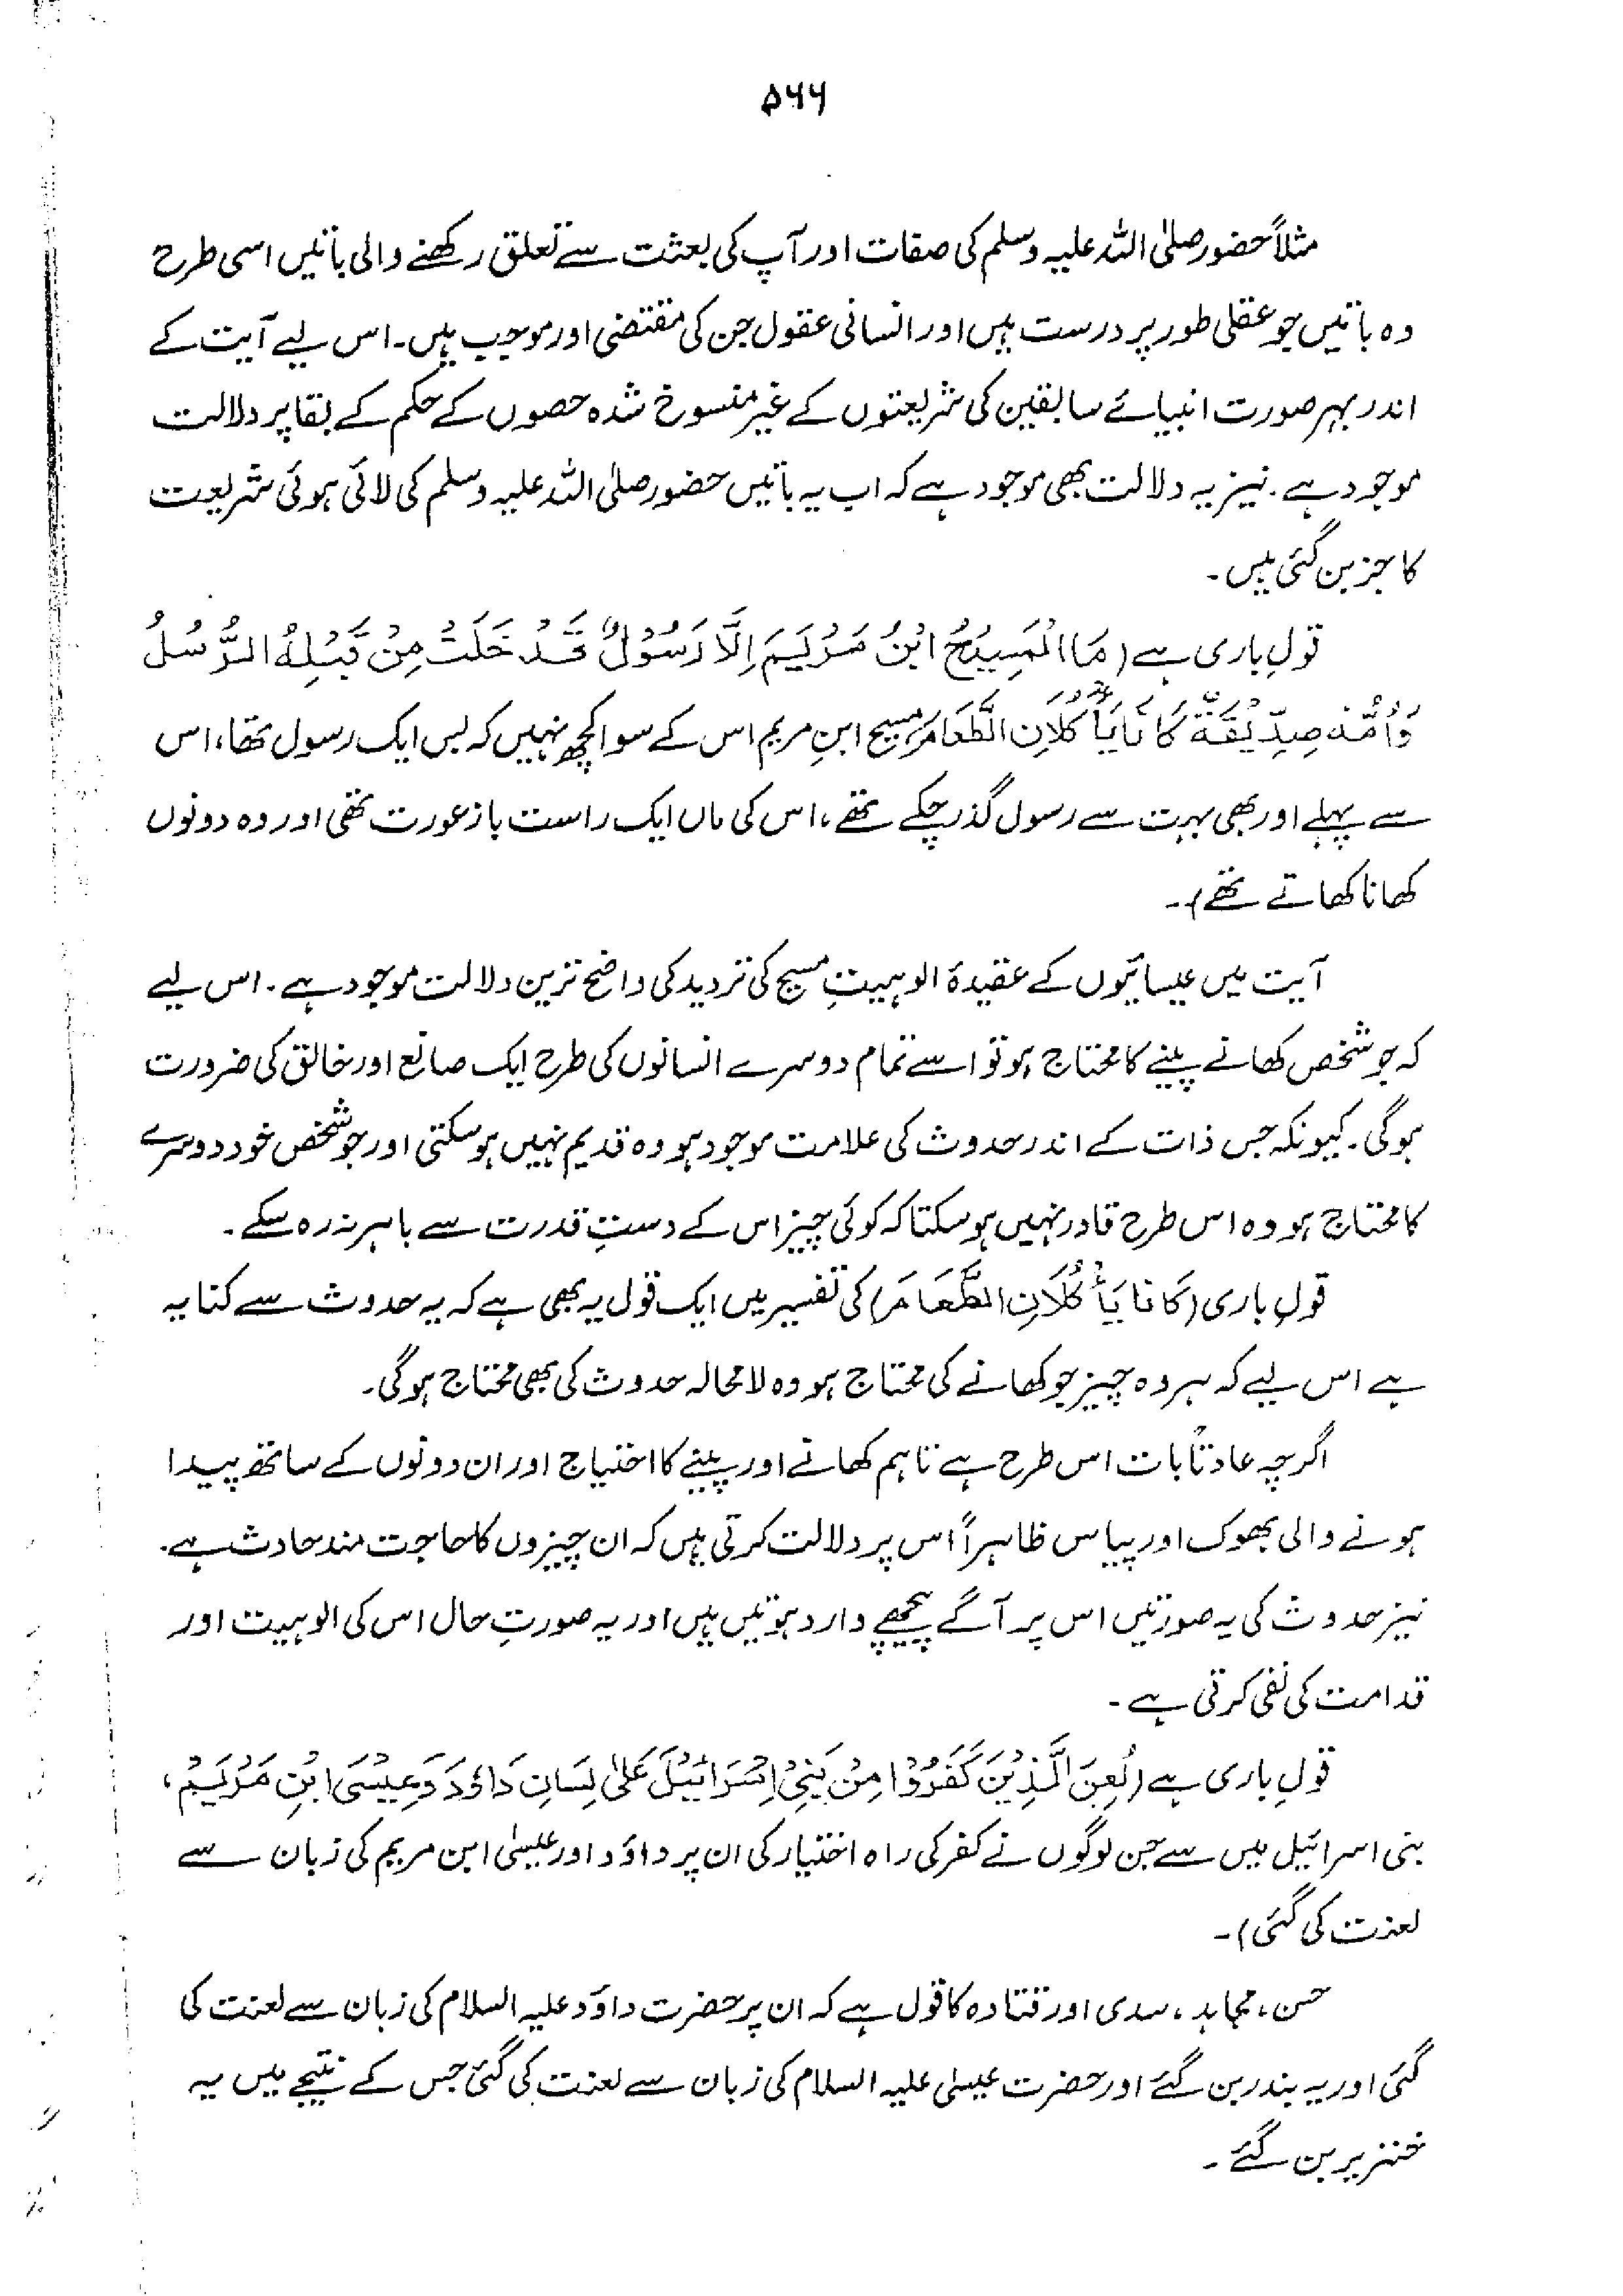 ۵۶۶
مثلاً حضور صلی اللہ علیہ وسلم کی صفات اور آپ کی بعثت سے تعلق رکھنے والی باتیں اسی طرح
وہ باتیں جو عقلی طور پر درست ہیں اور انسانی عقول جن کی مقتضی اور موجب ہیں۔ اس لیے آیت کے
اندر بہر صورت انبیائے سابقین کی شریعتوں کے غیر منسوخ شدہ حصوں کے حکم کے بقا پر دلالت
موجود ہے۔ نیز یہ دلالت بھی موجود ہے کہ اب یہ باتیں حضور صلی اللہ علیہ وسلم کی لائی ہوئی شریعت
کا جز بن گئی ہیں۔
قولِ باری ہے (مَا الْمَسِیْحُ ابْنُ مَرْیَمَ اِلَّا رَسُوْلٌ قَدْ خَلَتْ مِنْ قَبْلِهِ الرُّسُلُ
وَاُمُّهٗ صِدِّیْقَةٌ کَانَا یَأْکُلَانِ الطَّعَامَ، مسیح ابنِ مریم اس کے سوا کچھ نہیں کہ بس ایک رسول تھا، اس
سے پہلے اور بھی بہت سے رسول گذر چکے تھے، اس کی ماں ایک راست باز عورت تھی اور وہ دونوں
کھانا کھاتے تھے)۔
آیت میں عیسائیوں کے عقیدۂ الوہیتِ مسیح کی تردید کی واضح ترین دلالت موجود ہے۔ اس لیے
کہ جو شخص کھانے پینے کا محتاج ہو تو اسے تمام دوسرے انسانوں کی طرح ایک صانع اور خالق کی ضرورت
ہوگی۔ کیونکہ جس ذات کے اندر حدوث کی علامت موجود ہو وہ قدیم نہیں ہوسکتی اور جو شخص خود دوسرے
کا محتاج ہو وہ اس طرح قادر نہیں ہوسکتا کہ کوئی چیز اس کے دستِ قدرت سے باہر نہ رہ سکے۔
قولِ باری (کَانَا یَأْکُلَانِ الطَّعَامَ) کی تفسیر میں ایک قول یہ بھی ہے کہ یہ حدوث سے کنایہ
ہے اس لیے کہ ہر وہ چیز جو کھانے کی محتاج ہو وہ لامحالہ حدوث کی بھی محتاج ہوگی۔
اگرچہ عادتاً بات اس طرح ہے تاہم کھانے اور پینے کا احتیاج اور ان دونوں کے ساتھ پیدا
ہونے والی بھوک اور پیاس ظاہراً اس پر دلالت کرتی ہیں کہ ان چیزوں کا حاجت مند حادث ہے۔
نیز حدوث کی یہ صورتیں اس پر آگے پیچھے وارد ہوتیں ہیں اور یہ صورتِ حال اس کی الوہیت اور
قدامت کی نفی کرتی ہے۔
قولِ باری ہے (لُعِنَ الَّذِیْنَ کَفَرُوْا مِنْ بَنِیْ اِسْرَائِیْلَ عَلٰی لِسَانِ دَاوٗدَ وَعِیْسَی ابْنِ مَرْیَمَ،
بنی اسرائیل میں سے جن لوگوں نے کفر کی راہ اختیار کی ان پر داؤد اور عیسیٰ ابن مریم کی زبان سے
لعنت کی گئی)۔
حسن، مجاہد، سدی اور قتادہ کا قول ہے کہ ان پر حضرت داؤد علیہ السلام کی زبان سے لعنت کی
گئی اور یہ بندر بن گئے اور حضرت عیسیٰ علیہ السلام کی زبان سے لعنت کی گئی جس کے نتیجے میں یہ
خنزیر بن گئے۔